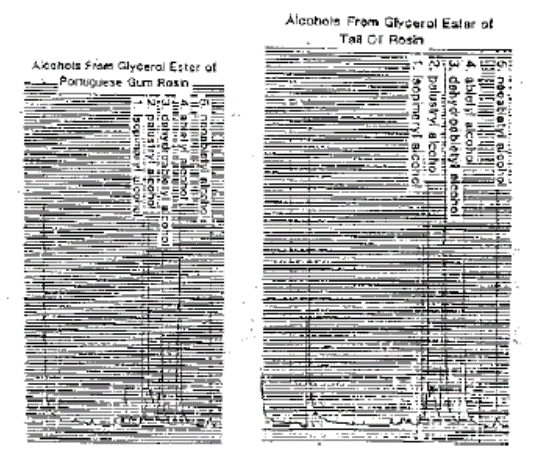 Alcohols From Glycerol Ester of
Portuguese Gum Rosin
1. isopimaryl alcohol
2. palustryl alcohol
3. dehydroabietyl alcohol
4. abietyl alcohol
5. neoabietyl alcohol
Alcohols From Glycerol Ester of
Tall Oil Rosin
1. isopimaryl alcohol
2. palustryl alcohol
3. dehydroabietyl alcohol
4. abietyl alcohol
5. neoabietyl alcohol